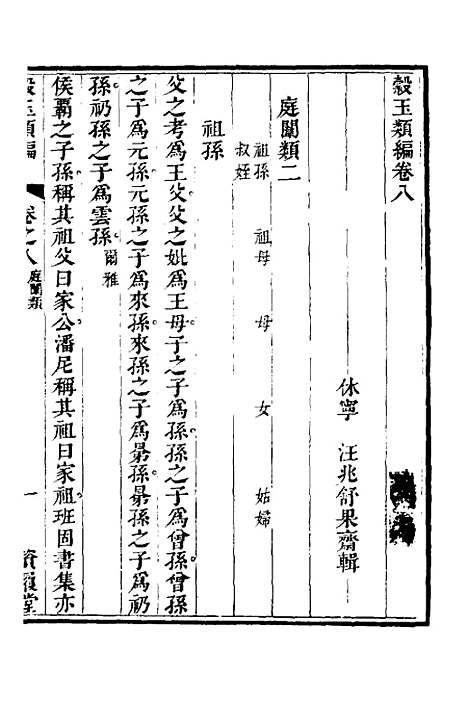 毂玉類編卷八
休寧　汪兆舒果齋輯
庭闈類二
祖孫　祖母　母　女　姑婦
叔姪
祖孫
父之考為王父父之妣為王母子之子為孫孫之子為曾孫曾孫
之子為元孫元孫之子為來孫來孫之子為晜孫晜孫之子為礽
孫礽孫之子為雲孫爾雅
侯霸之子孫稱其祖父曰家公潘尼稱其祖曰家祖班固書集亦
毂玉類編　卷之八庭闈類　一　資履堂